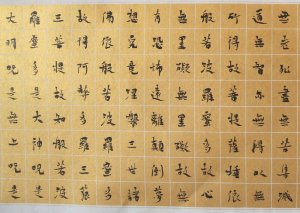 無老死盡無苦集滅
道無智亦無得以無
所得故菩提薩埵依
般若波羅蜜多故心
無罣礙無罣礙故無
有恐怖遠離顛倒夢
想究竟涅槃三世諸
佛依般若波羅蜜多
故得阿耨多羅三藐
三菩提故知般若波
羅蜜多是大神咒是
大明咒是無上咒是